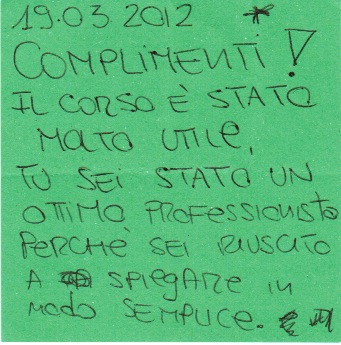 19.03.2012 *
COMPLIMENTI!
IL CORSO È STATO
MOLTO UTILE,
TU SEI STATO UN
OTTIMO PROFESSIONISTA
PERCHÈ SEI RIUSCITO
A SPIEGARE IN
MODO SEMPLICE.